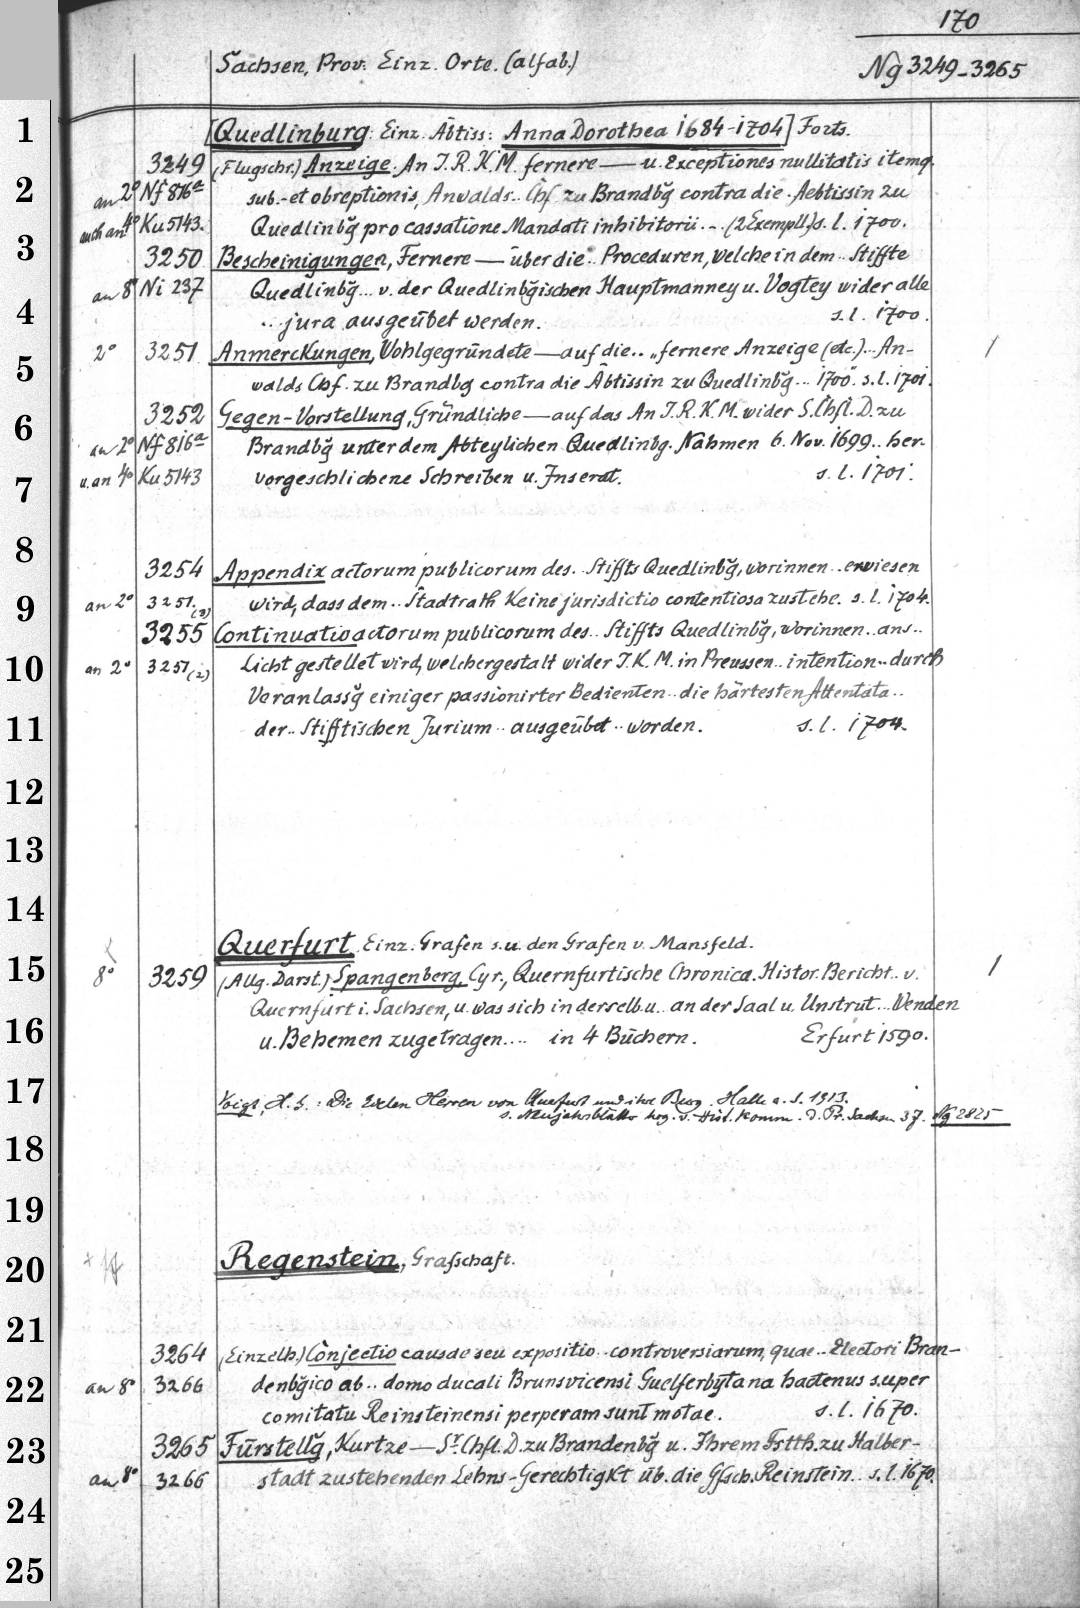 170
Sachsen, Prov. Einz. Orte. (alfab.)
Ng 3249-3265
1
[Quedlinburg. Einz. Äbtiss: Anna Dorothea 1684-1704] Forts.
3249 (Flugschr.) Anzeige. An I.R.K.M. fernere — u. Exceptiones nullitatis itemq.
2
an 2° Nf 816a sub.- et obreptionis, Anwalds.. Chf. zu Brandbg̃ contra die. Aebtissin zu
auch an 4° Ku 5143. Quedlinbg̃ pro cassatione Mandati inhibitorii... (2 Exempll.) s. l. 1700.
3
3250 Bescheinigungen, Fernere — über die.. Proceduren, welche in dem.. Stiffte
an 8° Ni 237 Quedlinbg̃... v. der Quedlinbg̃ischen Hauptmanney u. Vogtey wider alle
4
.. jura ausgeübet werden. s. l. 1700.
2° 3251 Anmerckungen, Wohlgegründete — auf die.. „fernere Anzeige (etc.)... An- /
5
walds Chf. zu Brandbg contra die Äbtissin zu Quedlinbg̃... 1700". s. l. 1701.
3252 Gegen-Vorstellung, Gründliche — auf das An I.R.K.M. wider S. Chfl. D. zu
6
an 2° Nf 816a Brandbg̃ unter dem Abteylichen Quedlinbg. Nahmen 6. Nov. 1699.. her-
u. an 4° Ku 5143 vorgeschlichene Schreiben u. Inserat. s. l. 1701.
7
8
3254 Appendix actorum publicorum des.. Stiffts Quedlinbg̃, worinnen.. erwiesen
9
an 2° 3251. (3) wird, dass dem.. Stadtrath keine jurisdictio contentiosa zustehe. s. l. 1704.
3255 Continuatio actorum publicorum des.. Stiffts Quedlinbg̃, worinnen.. ans..
10
an 2° 3251 (2) Licht gestellet wird, welchergestalt wider I.K.M. in Preussen.. intention.. durch
Veranlassg̃ einiger passionirter Bedienten.. die härtesten Attentata..
11
der.. Stifftischen Jurium.. ausgeübet.. worden. s. l. 1704.
12
13
14
Querfurt. Einz. Grafen s. u. den Grafen v. Mansfeld.
15
8° 3259 (Allg. Darst.) Spangenberg, Cyr., Quernfurtische Chronica. Histor. Bericht.. v. /
Quernfurt i. Sachsen, u. was sich in derselb. u.. an der Saal u. Unstrut... Wenden
16
u. Behemen zugetragen.... in 4 Büchern. Erfurt 1590.
17
Voigt, H. G.: Die Edlen Herren von Querfurt und ihre Burg. Halle a. S. 1913.
s. Neujahrsblätter hrsg. v. Hist. Komm. d. Pr. Sachsen 37. Ng 2825
18
19
Regenstein, Grafschaft.
20
21
3264 (Einzelh.) Conjectio causae seu expositio.. controversiarum, quae.. Electori Bran-
22
an 8° 3266 denbg̃ico ab.. domo ducali Brunsvicensi Guelferbytana hactenus super
comitatu Reinsteinensi perperam sunt motae. s. l. 1670.
23
3265 Fürstellg̃, Kurtze — Sr. Chfl. D. zu Brandenbg̃ u. Ihrem Fstth. zu Halber-
an 8° 3266 stadt zustehenden Lehns-Gerechtigkt üb. die Gfsch. Reinstein.. s. l. 1670.
24
25